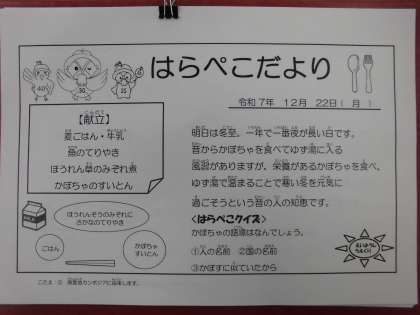 はらぺこだより
令和7年 12月 22日(月)
【献立】
麦ごはん・牛乳
魚のてりやき
ほうれん草のみぞれ煮
かぼちゃのすいとん
明日は冬至。一年で一番夜が長い日です。
昔からかぼちゃを食べてゆず湯に入る
風習がありますが、栄養があるかぼちゃを食べ、
ゆず湯で温まることで寒い冬を元気に
過ごそうという昔の人の知恵です。
<はらぺこクイズ>
かぼちゃの語源はなんでしょう。
①人の名前 ②国の名前
③かぼすに似ていたから
ほうれんそうのみぞれに
さかなのてりやき
ごはん
かぼちゃ
すいとん
こたえ:② 原産地カンボジアに由来します。